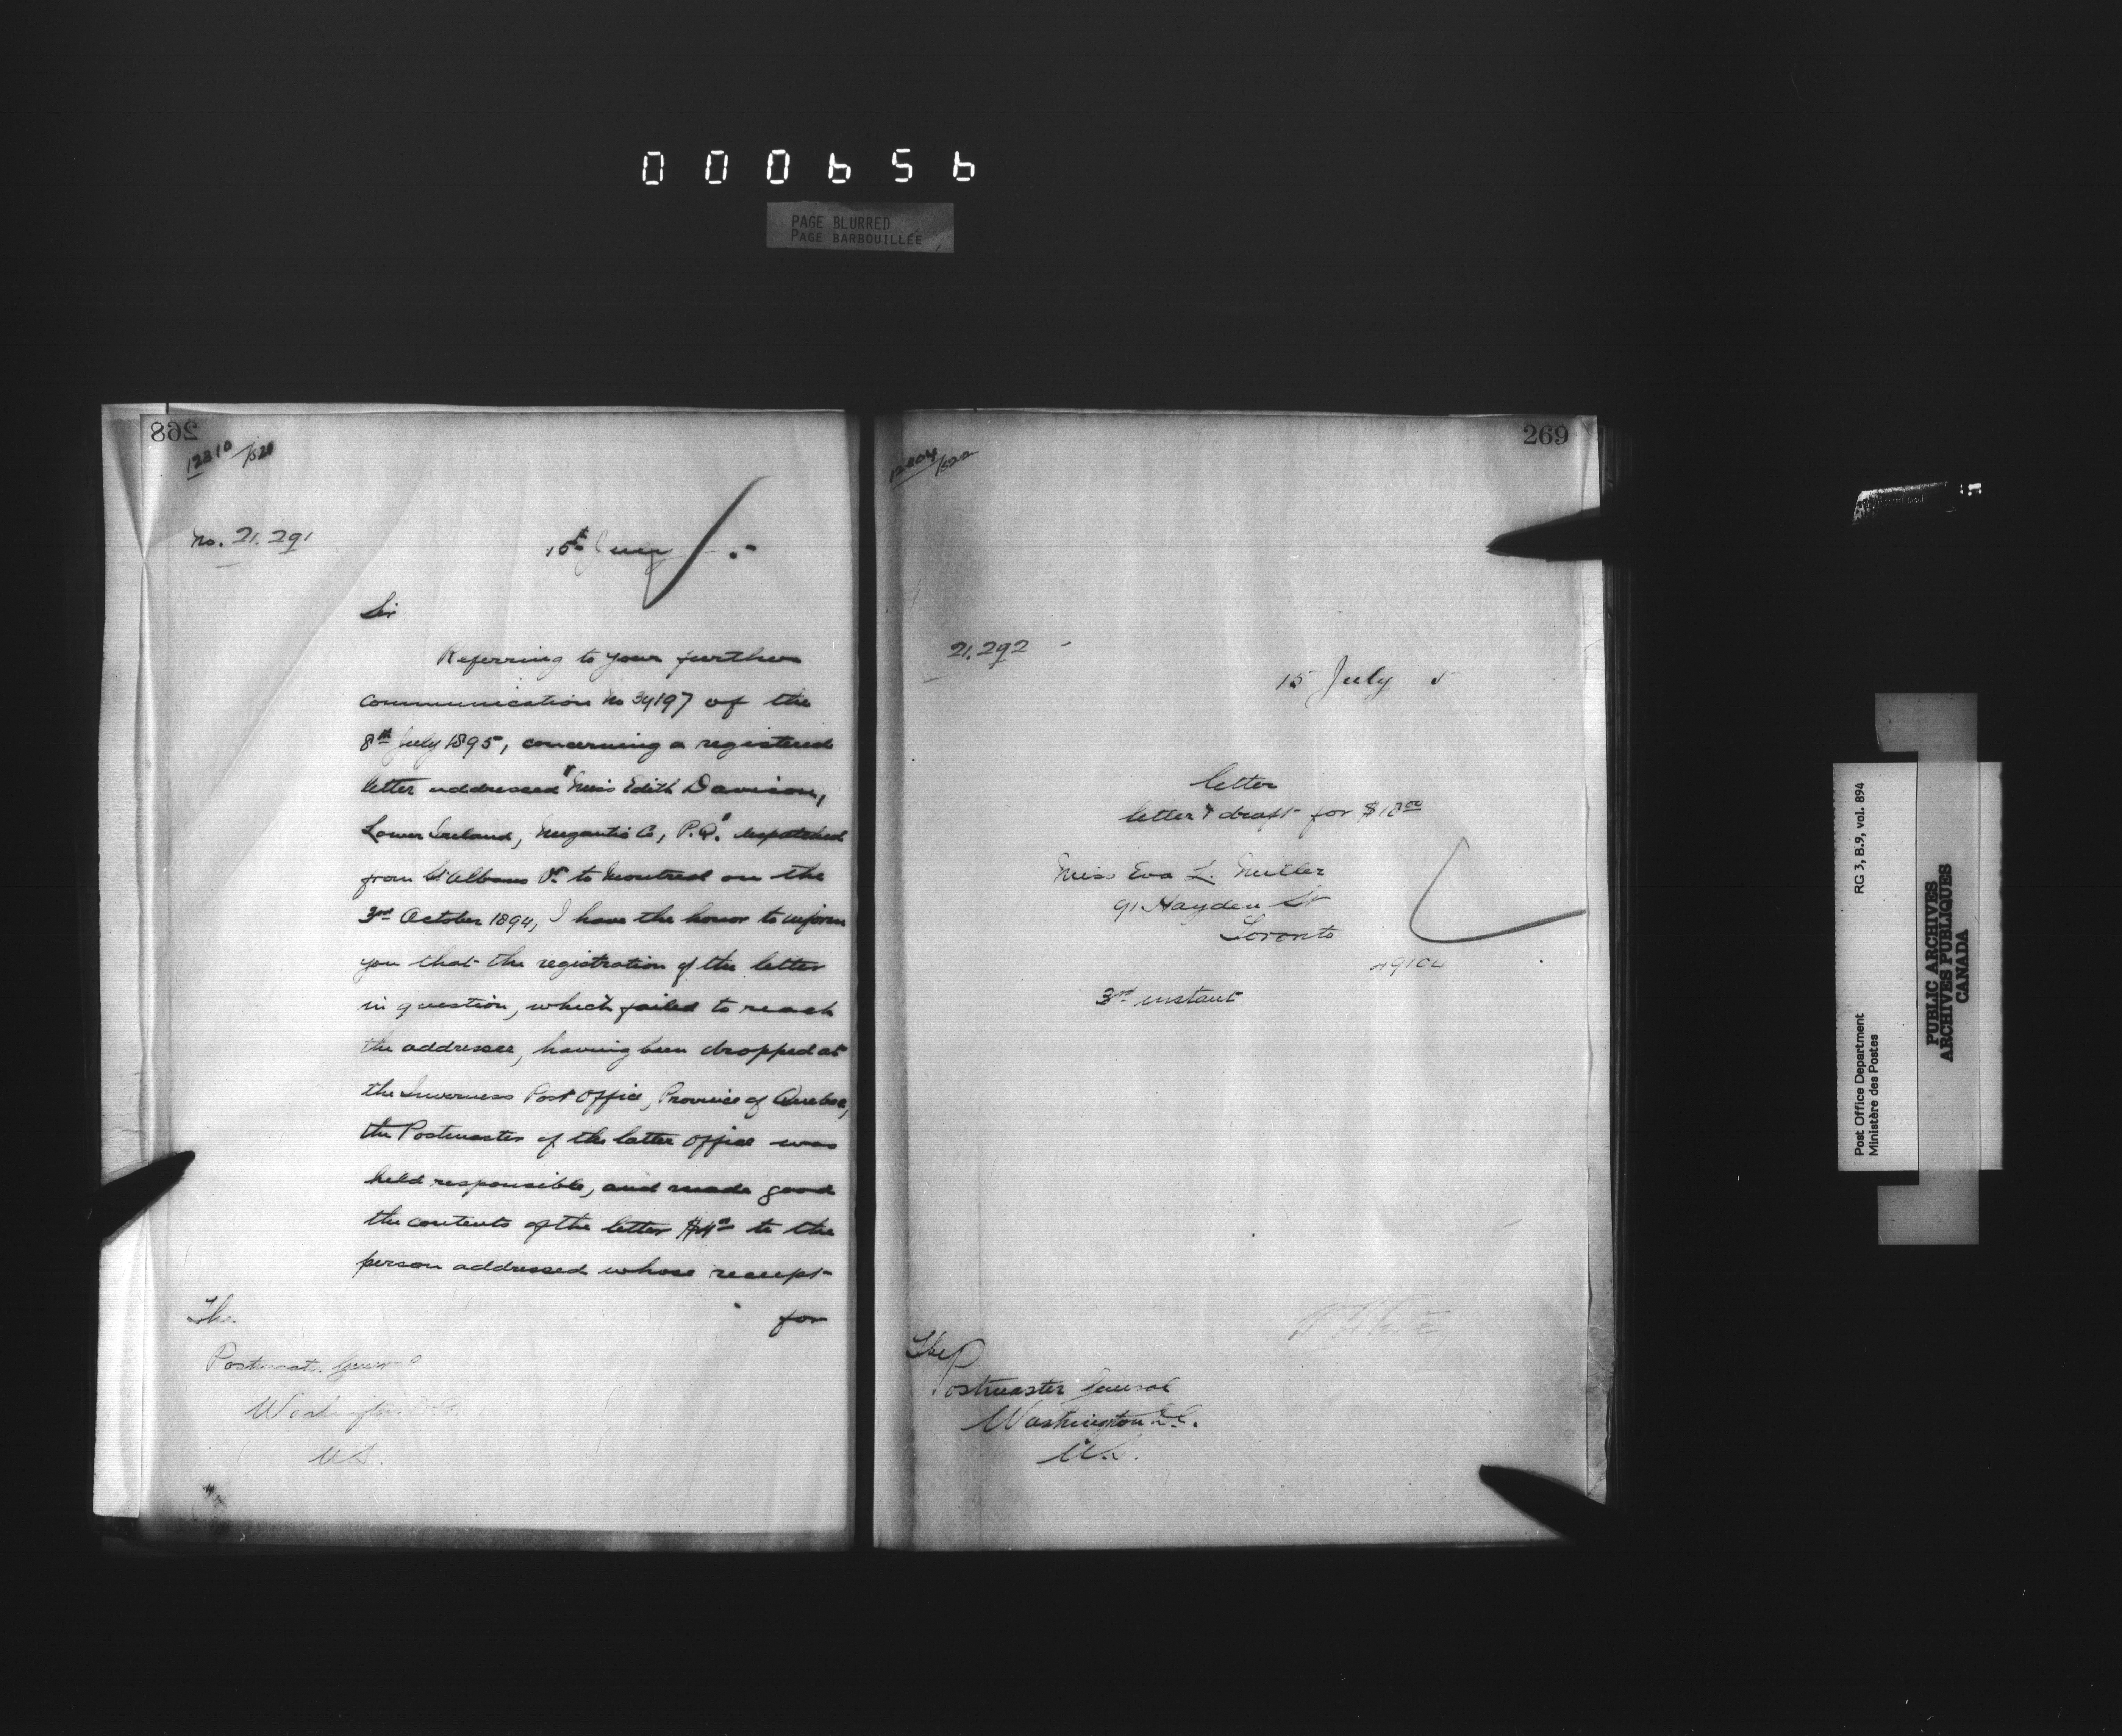 000656
PAGE BLURRED
PAGE BARBOUILLÉE
268
12310/520
No. 21.291
15th July 5
Sir
Referring to your further
communication No 34197 of the
8th July 1895, concerning a registered
letter addressed "Miss Edith Davison,
Lower Ireland, Megantic Co, P.Q." despatched
from St Albans Vt. to Montreal on the
3rd October 1894, I have the honor to inform
you that the registration of the letter
in question, which failed to reach
the addressee, having been dropped at
the Inverness Post Office, Province of Quebec,
the Postmaster of the latter office was
held responsible, and made good
the contents of the letter to the
person addressed whose receipt
for
The
Postmaster General
Washington D.C.
U.S.
269
21.292
15 July 5
letter
letter & draft for $18.00
Miss Eva L. Miller
91 Hayden St
Toronto
3rd instant
The
Postmaster General
Washington D.C.
U.S.
RG 3, B.9, vol. 894
Post Office Department
Ministère des Postes
PUBLIC ARCHIVES
ARCHIVES PUBLIQUES
CANADA